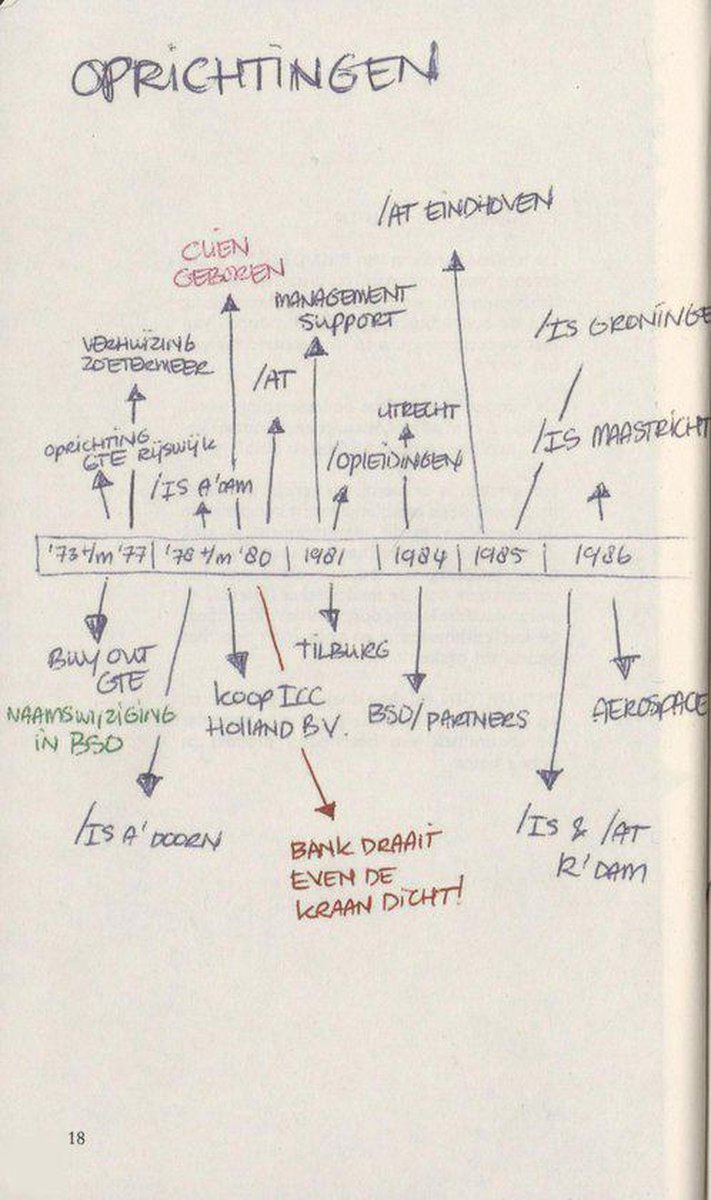 OPRICHTINGEN
/AT EINDHOVEN
CLIEN
GEBOREN
MANAGEMENT
SUPPORT
/IS GRONINGE
VERHUIZING
ZOETERMEER
/AT
UTRECHT
/IS MAASTRICHT
OPRICHTING
GTE RIJSWIJK
/OPLEIDINGEN
/IS A'DAM
'73 t/m '77 | '78 t/m '80 | 1981 | 1984 | 1985 | 1986
BUY OUT
GTE
TILBURG
NAAMSWIJZIGING
IN BSO
KOOP ICC
HOLLAND BV.
BSO/PARTNERS
AEROSPACE
/IS A'DOORN
/IS & /AT
R'DAM
BANK DRAAIT
EVEN DE
KRAAN DICHT!
18